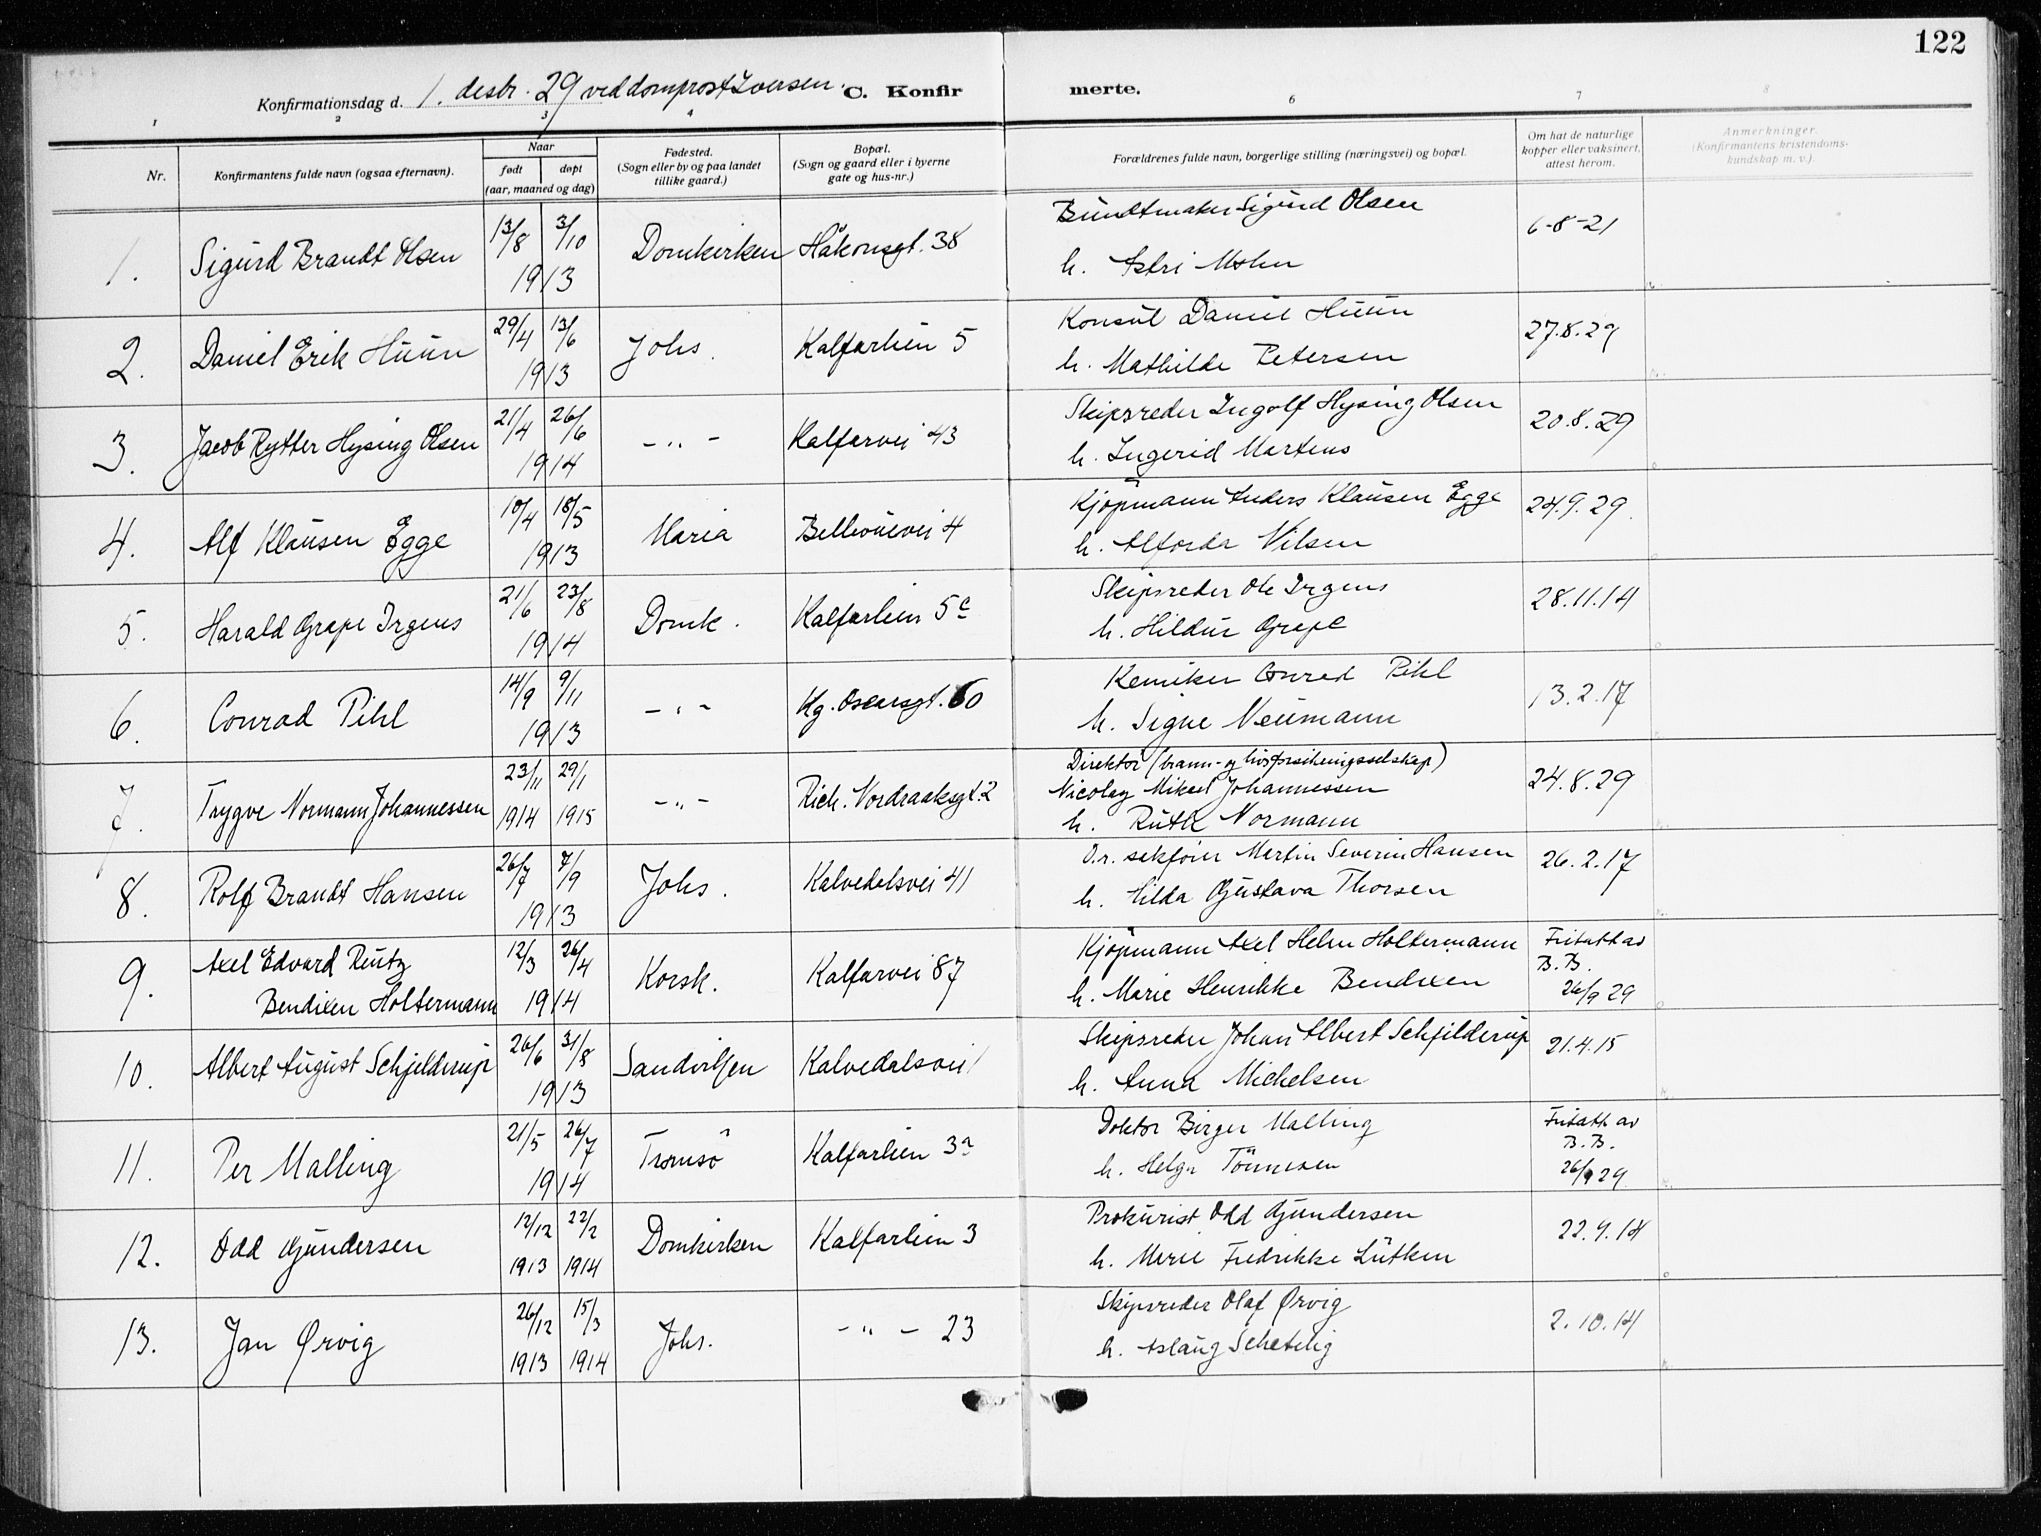 122
Konfirmationsdag d. 1. desbr. 29 ved domprost Iversen. C. Konfirmerte.
1 2 3 4 6 7 8
Nr. Konfirmantens fulde navn (ogsaa efternavn). Naar født døpt (aar, maaned og dag) Fødested. (Sogn eller by og paa landet tillike gaard.) Bopæl. (Sogn og gaard eller i byerne gate og hus-nr.) Forældrenes fulde navn, borgerlige stilling (næringsvei) og bopæl. Om hat de naturlige kopper eller vaksinert, attest herom. Anmerkninger. (Konfirmantens kristendoms-kundskap m. v.)
1. Sigurd Brandt Olsen 13/8 3/10 1913 Domkirken Håkonsgt. 38 Buntmaker Sigurd Olsen 6-8-21
h. Astri Mohn
2. Daniel Erik Huun 29/4 13/6 1913 Johs. Kalfarlien 5 Konsul Daniel Huun 27.8.29
h. Mathilde Petersen
3. Jacob Rytter Hysing Olsen 21/4 26/6 1914 - " - Kalfarvei 43 Skipsreder Ingolf Hysing Olsen 20.8.29
h. Ingerid Martens
4. Alf Klausen Egge 10/4 18/5 1913 Maria Bellevuevei 4 Kjöpmann Anders Klausen Egge 24.9.29.
h. Alforda Nilsen
5. Harald Grape Irgens 21/6 23/8 1914 Domk. Kalfarlien 5c Skipsreder Ole Irgens 28.11.14
h. Hildur Grape
6. Conrad Pihl 14/9 9/11 1913 - " - Kg. Oscarsgt. 60 Kemiker Conrad Pihl 13.2.17
h. Signe Neumann
7. Trygve Normann Johannessen 23/11 1914 29/1 1915 - " - Rich. Nordraaksgt. 2 Direktör (brann- og livsforsikringsselskap) 24.8.29
Nicolay Mikael Johannessen
h. Ruth Normann
8. Rolf Brandt Hansen 26/7 7/9 1913 Johs. Kalvedalsvei 41 O.r. sakförer Martin Severin Hansen 26.2.17
h. Hilda Gustava Thorsen
9. Axel Edvard Reutz 12/3 26/4 1914 Korsk. Kalfarvei 87 Kjöpmann Axel Helm Holtermann Fritatt av
Bendixen Holtermann h. Marie Henrikke Bendixen B.B. 26/9 29
10. Albert August Schjelderup 26/6 31/8 1913 Sandviken Kalvedalsvei 1 Skipsreder Johan Albert Schjelderup 21.4.15
h. Anna Michelsen
11. Per Malling 21/5 26/7 1914 Tromsö Kalfarlien 3a Doktor Birger Malling Fritatt av
h. Helga Tönnesen B.B. 26/9 29.
12. Odd Gundersen 12/12 1913 22/2 1914 Domkirken Kalfarlien 3 Prokurist Odd Gundersen 22.9.14
h. Merie Fredrikke Lütken
13. Jan Ørvig 26/12 1913 15/3 1914 Johs. - " - 23 Skipsreder Olaf Ørvig 2.10.14
h. Aslaug Schetelig